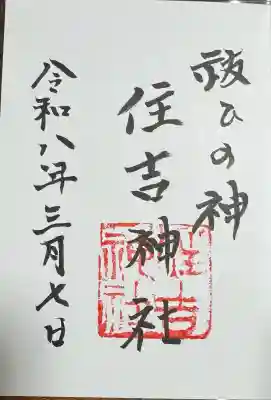 祓ひの神
住吉神社
住吉神社
令和八年三月七日